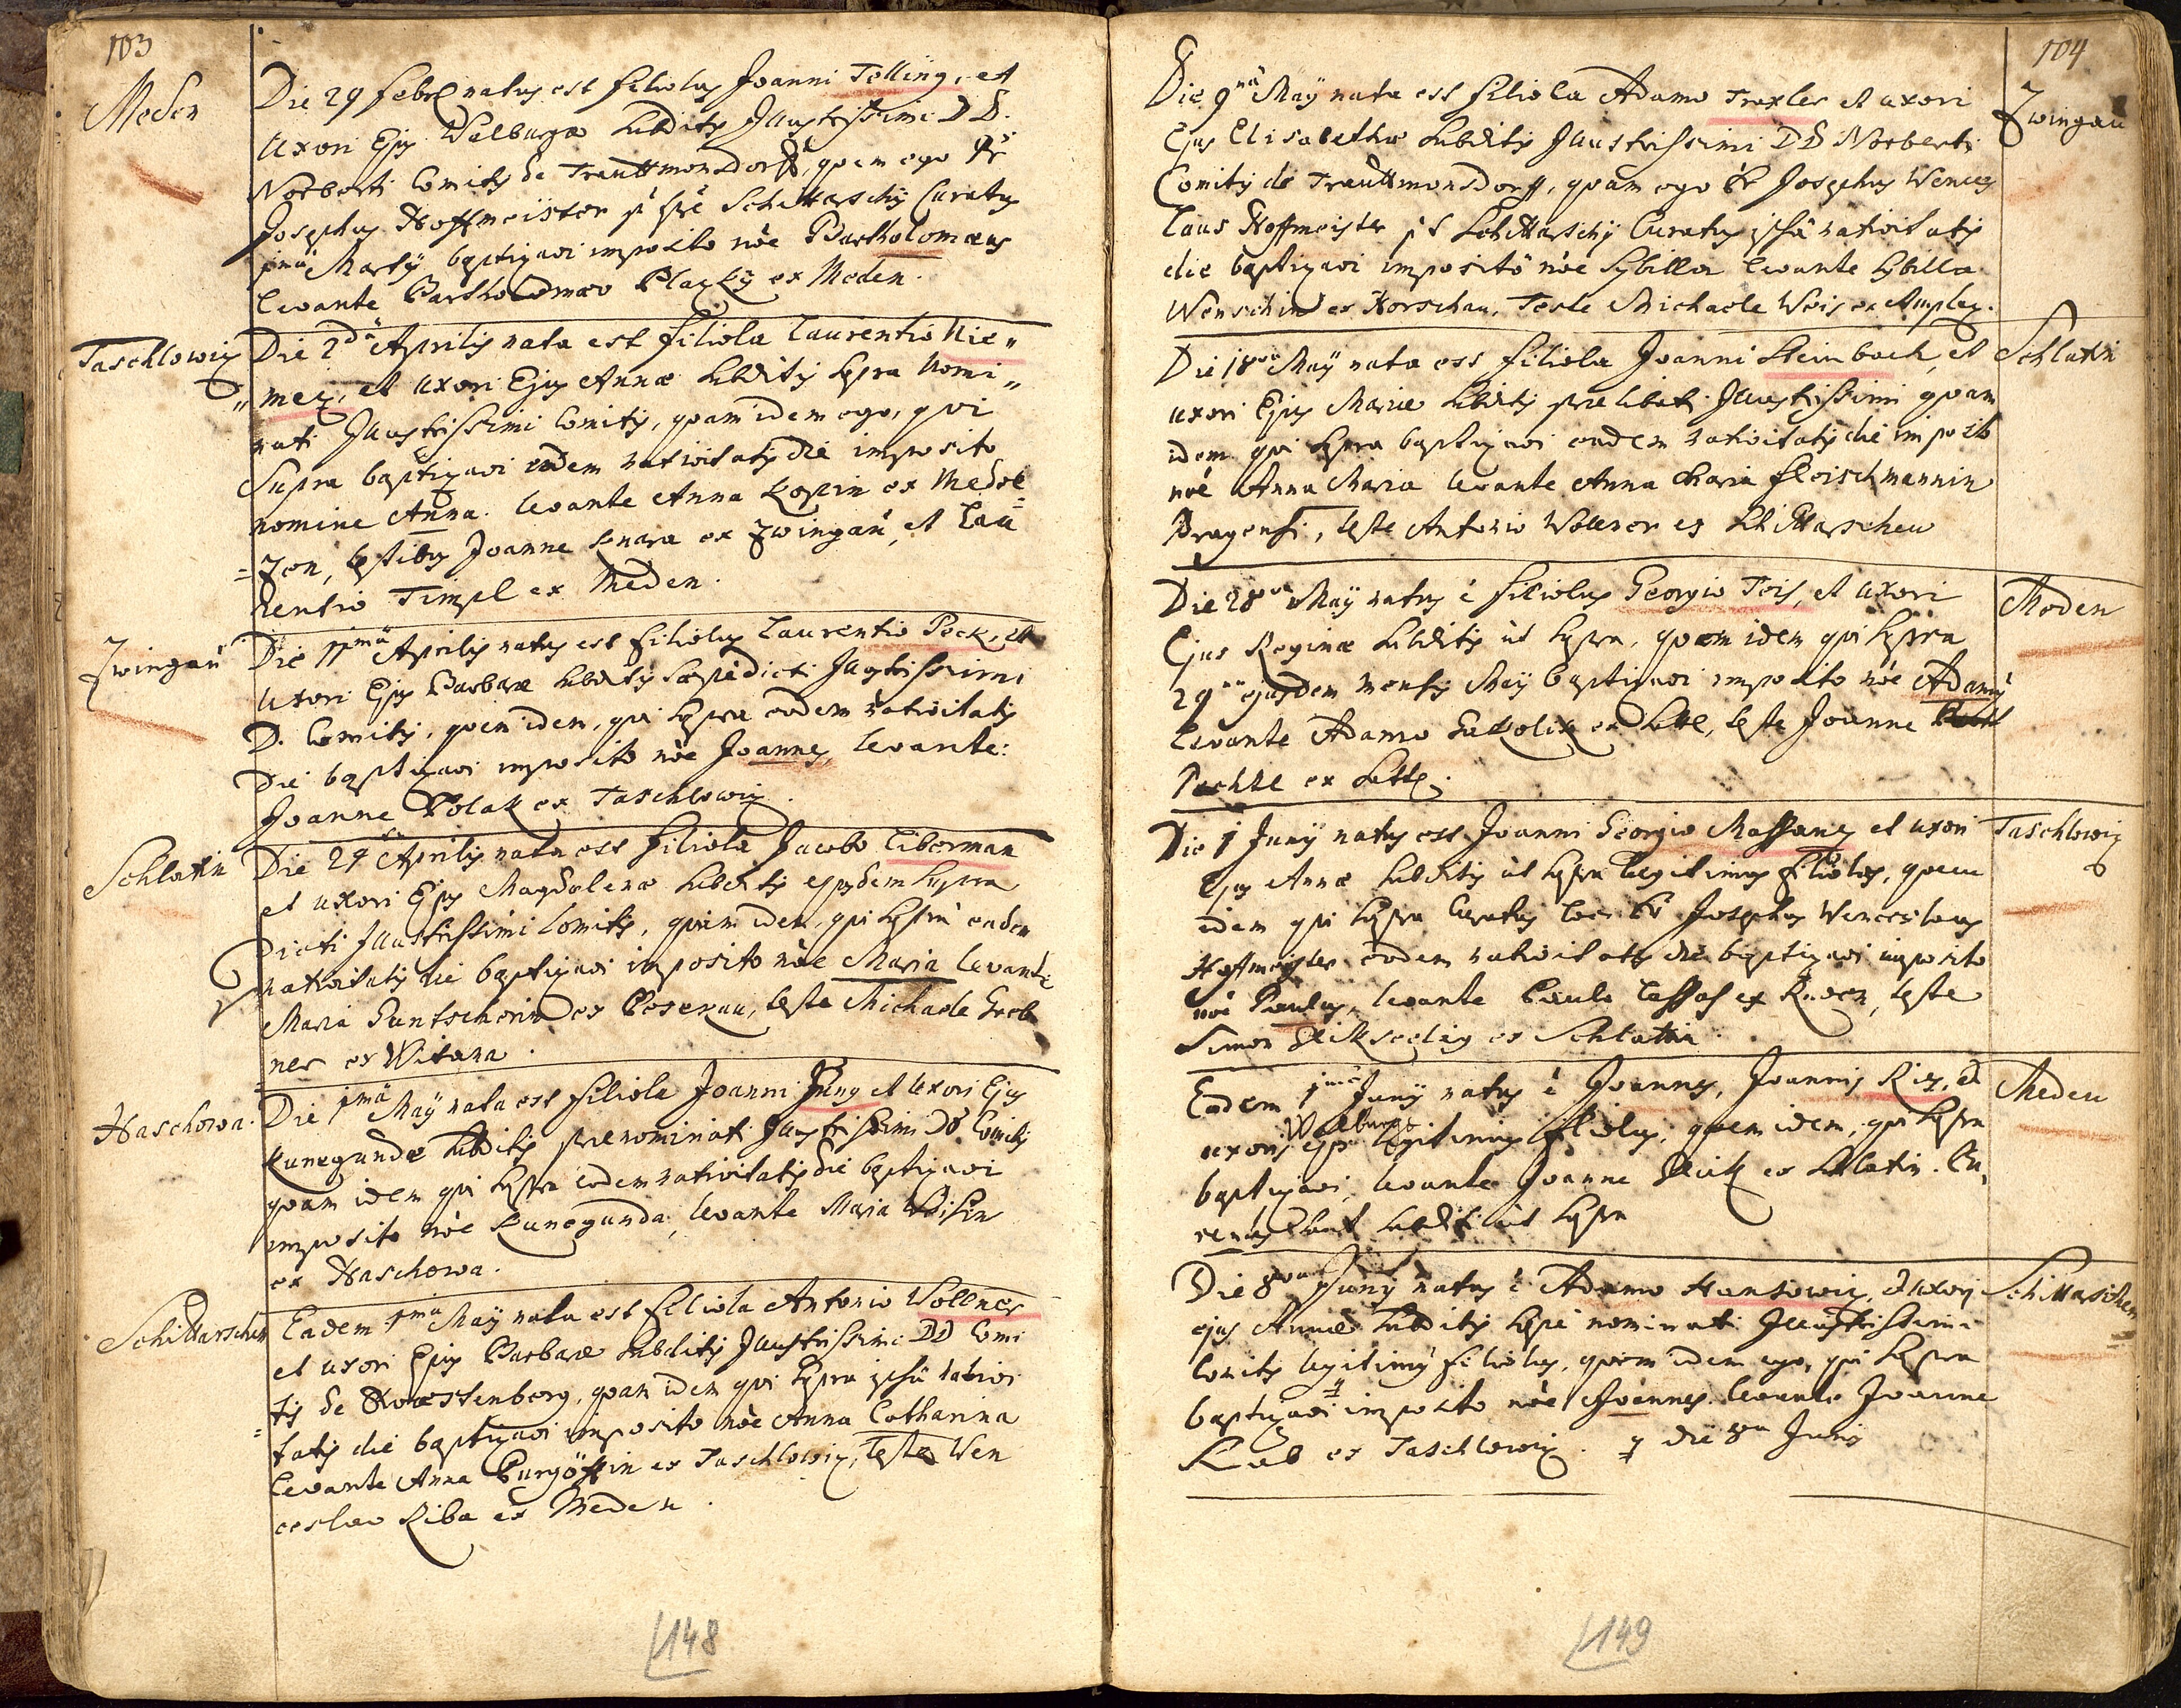 103
Meden
Die 29 Febr. natus est filiolus Joanni Tolling, et
Uxori Ejus Walburgæ subditis Illustrissimi DD.
Norberti Comitis de Trauttmonsdorff, quem ego Pr
Josephus Hoffmeister Schittarschij Curatus
1mâ Martij baptizavi imposito nôe Bartholomæus
levante Bartholomæo Plazky ex Meden.
Taschlowiz
Die 2dâ Aprilis nata est filiola Laurentio Nie„
„mez, et uxori Ejus Annæ subditis supra Nomi„
nati Illustrissimi Comitis, quam idem ego, qui
Supra baptizavi eodem nativitatis die imposito
nomine Anna. levante Anna Kopin ex Medol
=zen, testibus Joanne Knara ex Zwingau, et Lau=
rentio Timpl ex Meden.
Zwingau
Die 11mâ Aprilis natus est filiolus Laurentio Pock, et
Uxori Ejus Barbaræ subditis sæpedicti Illustrissimi
D. Comitis, quem idem, qui supra eodem nativitatis
Die baptizavi imposito nôe Joannes, levante:
Joanne Polak ex Taschlowiz.
Schlatin
Die 24 Aprilis nata est filiola Jacobo Liberman
et uxori Ejus Magdalenæ subditis ejusdem supra
Dicti Illustrissimi Comitis, quam idem, qui supra eadem
nativitatis die baptizavi imposito nôe Maria levante
Maria Guntscherin ex Poseнau, teste Michaele Greb
ner ex Witana.
Haschowa.
Die 1mâ Maÿ nata est filiola Joanni Jung et Uxori Ejus
Kunegundæ subditis prænominati Illustrissimi DD Comitis
quam idem qui supra eodem nativitatis die baptizavi
imposito nôe Kunegunda, levante Maria Weisin
ex Haschowa.
Schittarschen
Eadem 1mâ Maÿ nata est filiola Antonio Wollner
et uxori Ejus Barbaræ subditis Illustrissimi DD Comi
tis de, quam idem qui supra ipsâ nativi
=tatis die baptizavi imposito nôe Anna Catharina
levante Anna in ex Taschlowiz, teste Wen
ceslao Riba ex Meden.
148
104
Zwingau
Die 9nâ Maÿ nata est filiola Adamo Traxler et uxori
Ejus Elisabethæ subditis Illustrissimi DD Norberti
Comitis de Trauttmonsdorff, quam ego Pr Josephus Wences
laus Hoffmeister Schittarschij Curatus ipsâ nativitatis
die baptizavi imposito nôe Sybilla levante Sybilla
Wenschin ex Horschau, Teste Michaele Weis ex Amplaz.
Schlatin
Die 18va Maÿ nata est filiola Joanni Steinbach, et
uxori Ejus Mariæ subditis prælibati Illustrissimi quam
idem qui supra baptizavi eadem nativitatis die imposito
nôe Anna Maria levante Anna Maria Fleischmannin
Pragensi, teste Antonio Wollner ex Schittarschen
Meden
Die 28va Maÿ natus ê filiolus Georgio Teis, et uxori
Ejus Reginæ subditis ut supra, quem idem qui supra
29na ejusdem Mensis Maÿ baptizavi imposito nôe Adamus
levante Adamo ex, teste Joanne
Pechtl ex.
Taschlowiz
Die 1 Junÿ natus est Joanni Georgio Massanez et uxori
Ejus Annæ subditis ut supra legitimus filiolus, quem
idem qui supra Curatus loci Pr Josephus Wenceslaus
Hoffmeister eodem nativitatis die baptizavi imposito
nôe Paulus, levante Paulo ex Meden, teste
Simon ex Schlatin.
Meden
Eadem 1mâ Junÿ natus ê Joannes, Joannis Riz, et
Walburgæ
uxoris ejus legitimus filiolus, quem idem, qui supra
baptizavi, levante Joanne ex Schlatin.
subditi ut supra
Schittarschen
Die 8va Junÿ natus ê Adamo Hansowiz, et uxori
ejus Annæ subditis sæpe nominati Illustrissimi
Comitis legitimus filiolus, quem idem ego, qui supra
baptizavi imposito nôe Joannes levante Joanne
Kub ex Taschlowiz. die 8va Junij
149